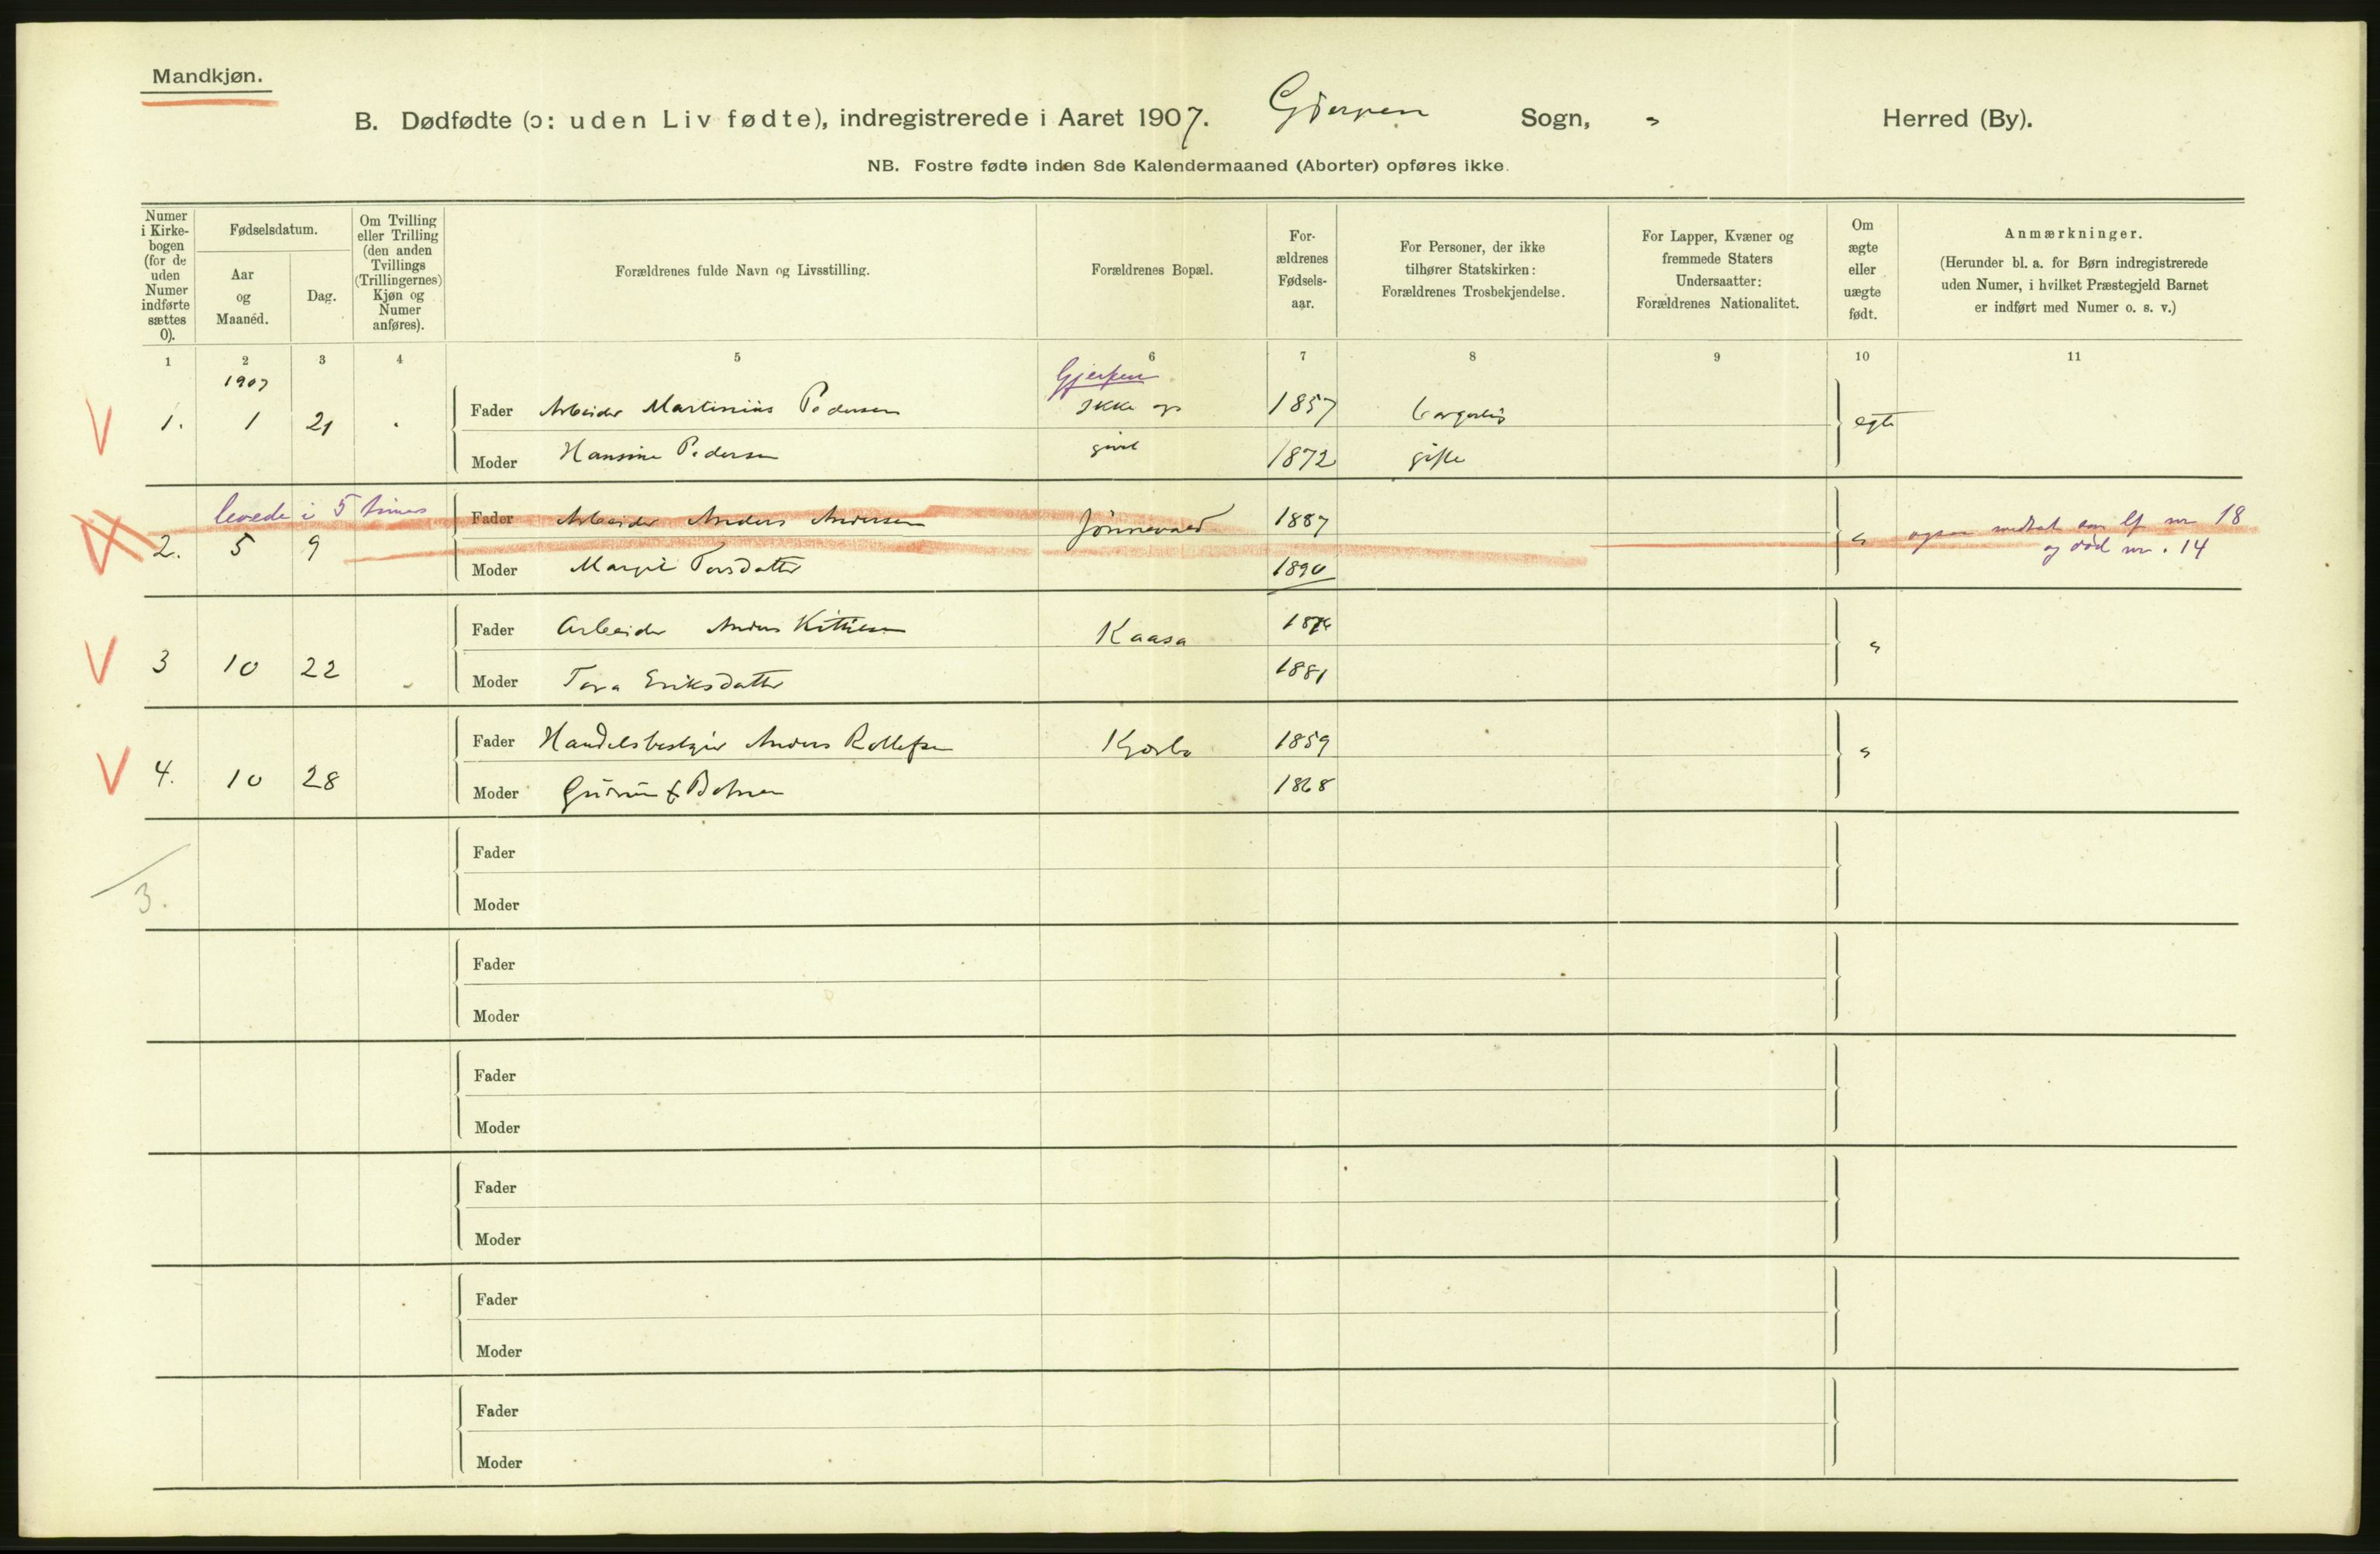 Mandkjøn.
B. Dødfødte (ɔ: uden Liv fødte), indregistrerede i Aaret 1907. Gjerpen Sogn, " Herred (By).
NB. Fostre fødte inden 8de Kalendermaaned (Aborter) opføres ikke.
Numer i Kirke-bogen (for de uden Numer indførte sættes 0).
Fødselsdatum.
Aar og Maaned.
Dag.
Om Tvilling eller Trilling (den anden Tvillings (Trillingernes) Kjøn og Numer anføres).
Forældrenes fulde Navn og Livsstilling.
Forældrenes Bopæl.
For-ældrenes Fødsels-aar.
For Personer, der ikke tilhører Statskirken: Forældrenes Trosbekjendelse.
For Lapper, Kvæner og fremmede Staters Undersaatter: Forældrenes Nationalitet.
Om ægte eller uægte født.
Anmærkninger.
(Herunder bl. a. for Børn indregistrerede uden Numer, i hvilket Præstegjeld Barnet er indført med Numer o. s. v.)
1 2 3 4 5 6 7 8 9 10 11
1907
Gjerpen
V 1. 1 21 Fader Arbeider Martinius Pedersen Ikke op 1857 borgerlig egte
Moder Hansine Pedersen givet 1872 gifte
levede i 5 timer
2. 5 9 Fader Arbeider Anders Andersen Jønnevald 1887 " ogsaa medtat som lf nr 18
og død nr. 14
Moder Margit Torsdatter 1890
V 3 10 22 Fader Arbeider Anders Kittilsen Kaasa "
Moder Tora Eriksdatter 1881
V 4. 10 28 Fader Handelsbestyrer Anders Rollefsen 1859 "
Moder 1868
Fader
3.
Moder
Fader
Moder
Fader
Moder
Fader
Moder
Fader
Moder
Fader
Moder